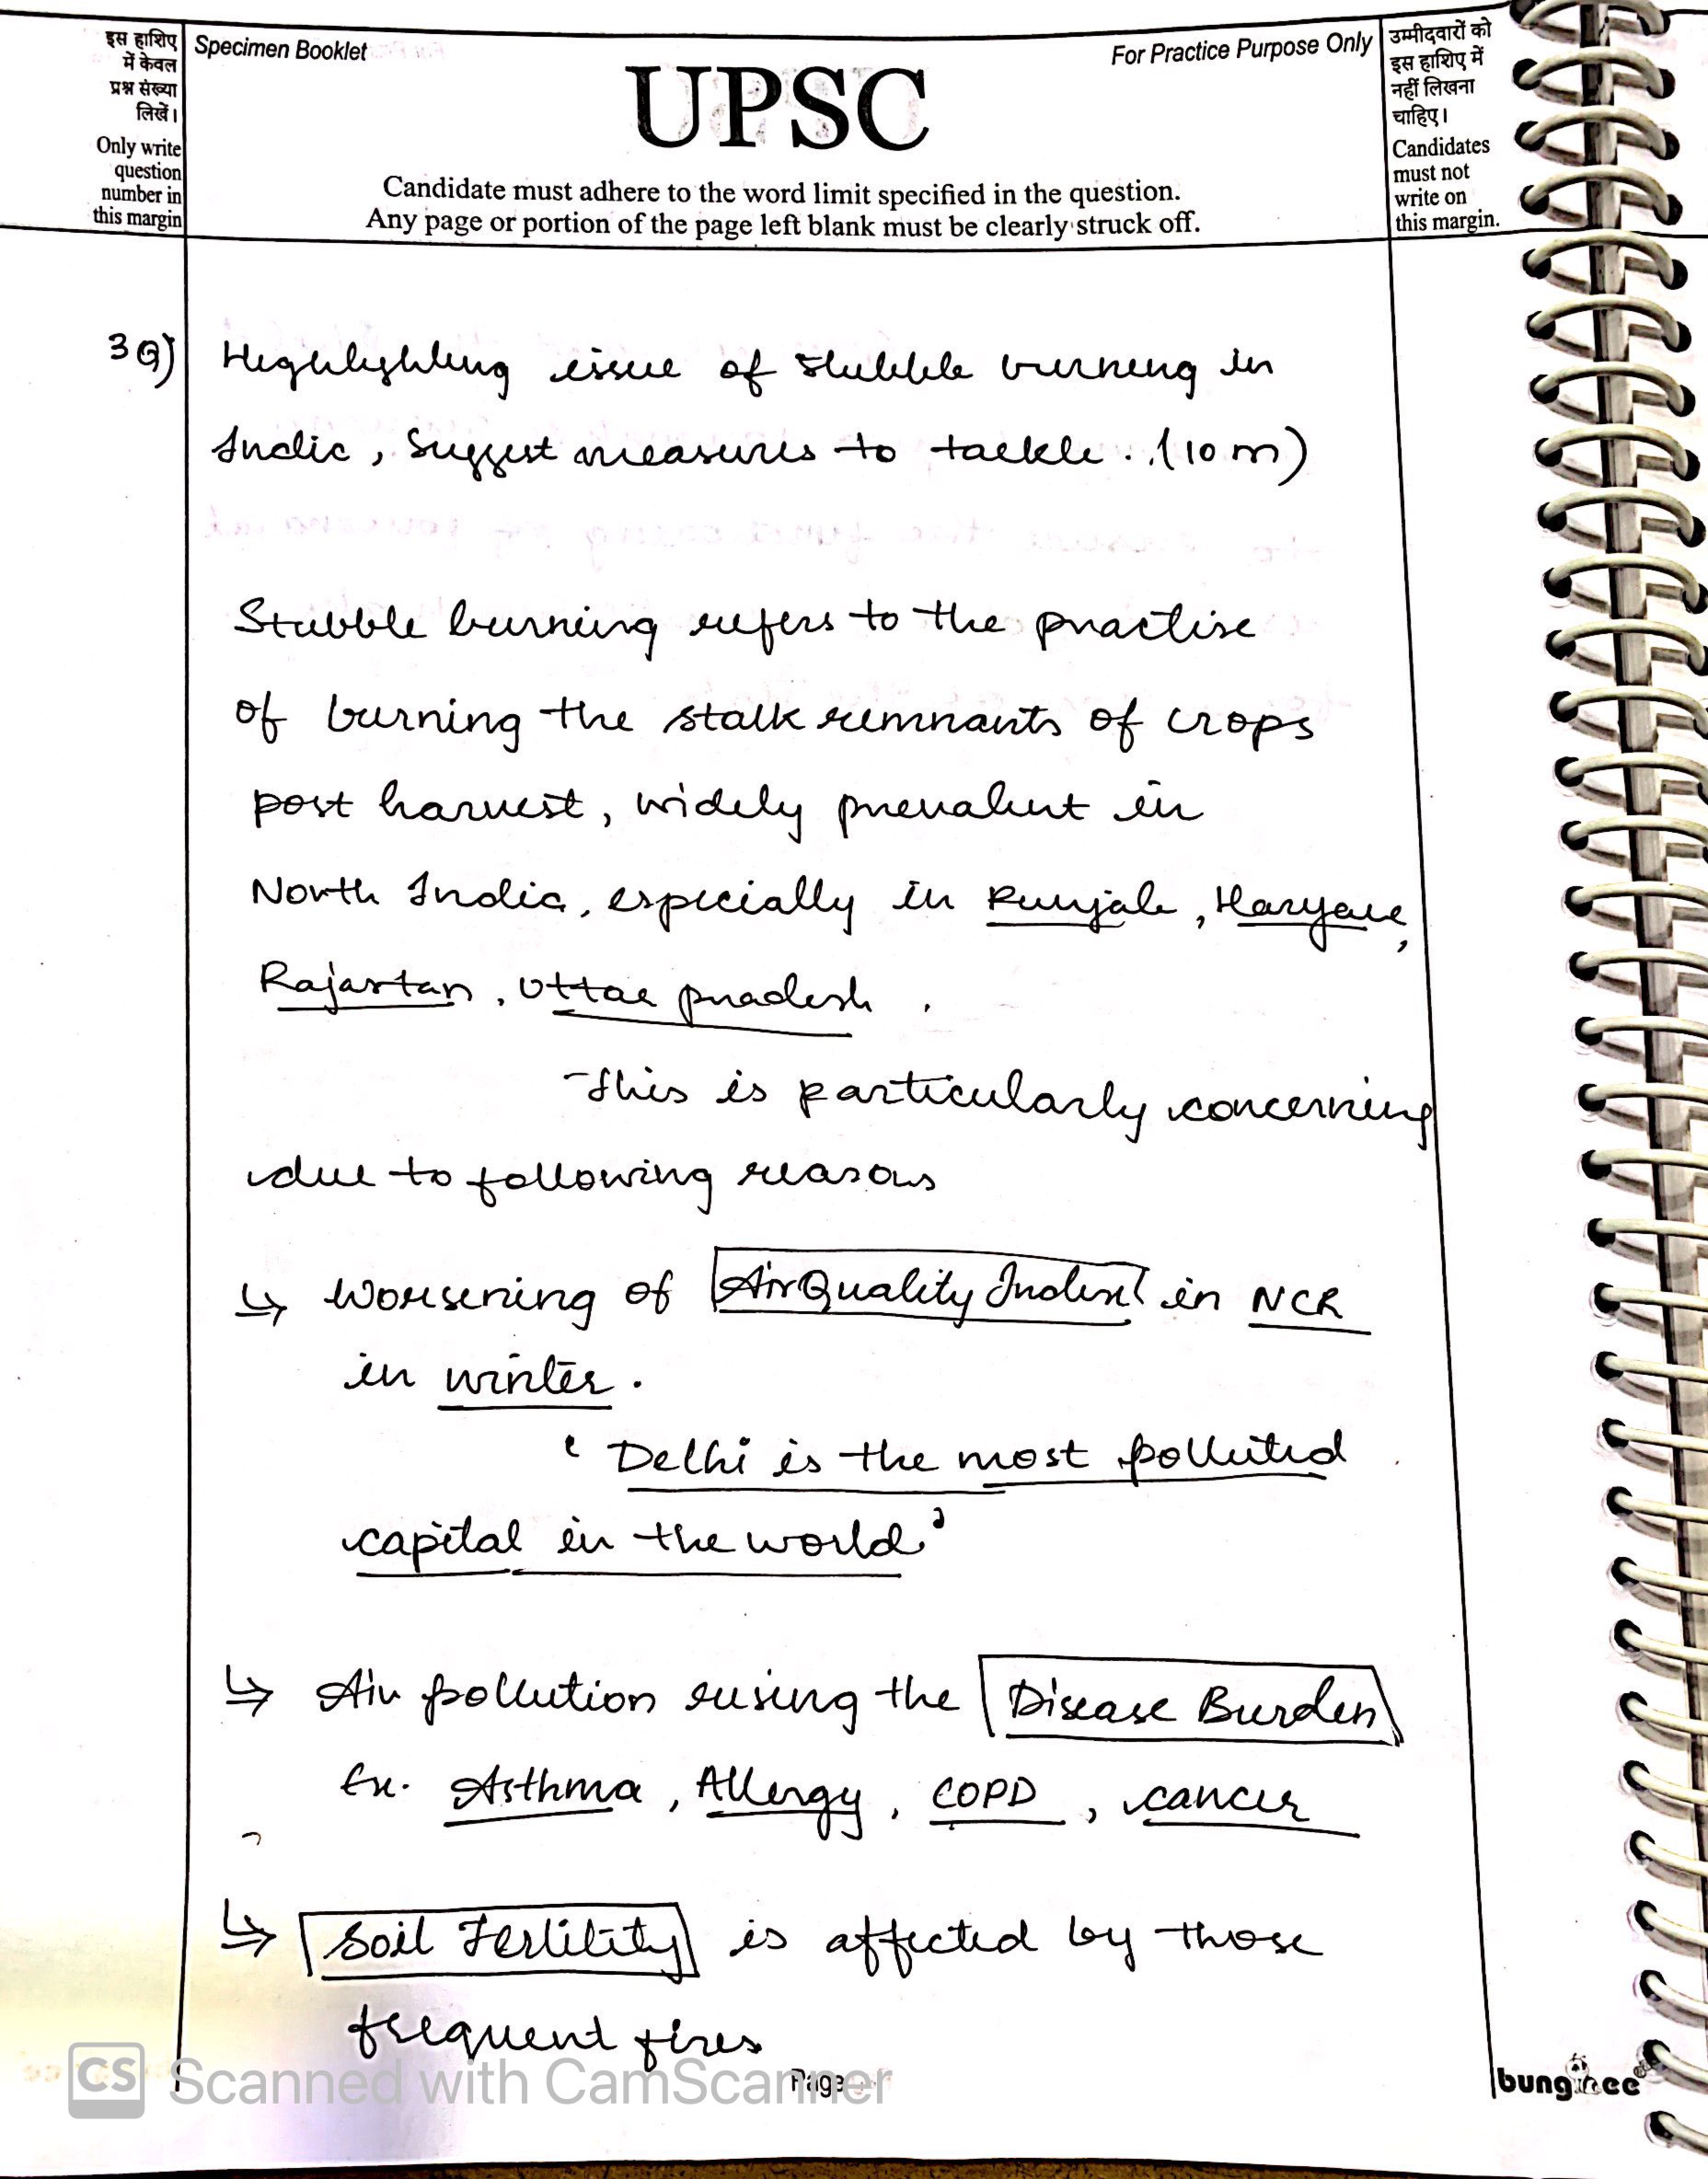 इस हाशिए
में केवल
प्रश्न संख्या
लिखें।
Only write
question
number in
this margin
Specimen Booklet
For Practice Purpose Only
UPSC
Candidate must adhere to the word limit specified in the question.
Any page or portion of the page left blank must be clearly struck off.
उम्मीदवारों को
इस हाशिए में
नहीं लिखना
चाहिए।
Candidates
must not
write on
this margin.
3Q) Highlighting issue of stubble burning in
India, suggest measures to tackle. (10 m)
Stubble burning refers to the practise
of burning the stalk remnants of crops
post harvest, widely prevalent in
North India, especially in Punjab, Haryana,
Rajastan, Uttar pradesh.
This is particularly concerning
due to following reasons
↳ Worsening of Air Quality Index in NCR
in winter.
' Delhi is the most polluted
capital in the world.'
↳ Air pollution rising the Disease Burden
Ex. Asthma, Allergy, COPD, cancer
↳ Soil Fertility is affected by those
frequent fires
CS Scanned with CamScanner
Page